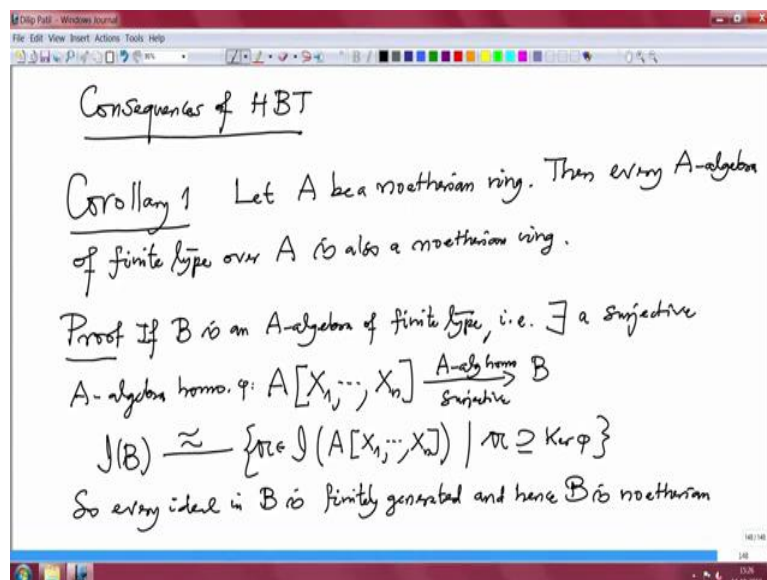 Dilip Patil - Windows Journal
File Edit View Insert Actions Tools Help
Consequences of HBT
Corollary 1 Let A be a noetherian ring. Then every A-algebra
of finite type over A is also a noetherian ring.
Proof If B is an A-algebra of finite type, i.e. ∃ a surjective
A-algebra homo. φ: A[X₁,…,Xₙ] —A-alg homo surjective→ B
𝓘(B) ≈ {𝔄 ∈ 𝓘(A[X₁,…,Xₙ]) | 𝔄 ⊇ Ker φ}
So every ideal in B is finitely generated and hence B is noetherian
148/148
148
15:26